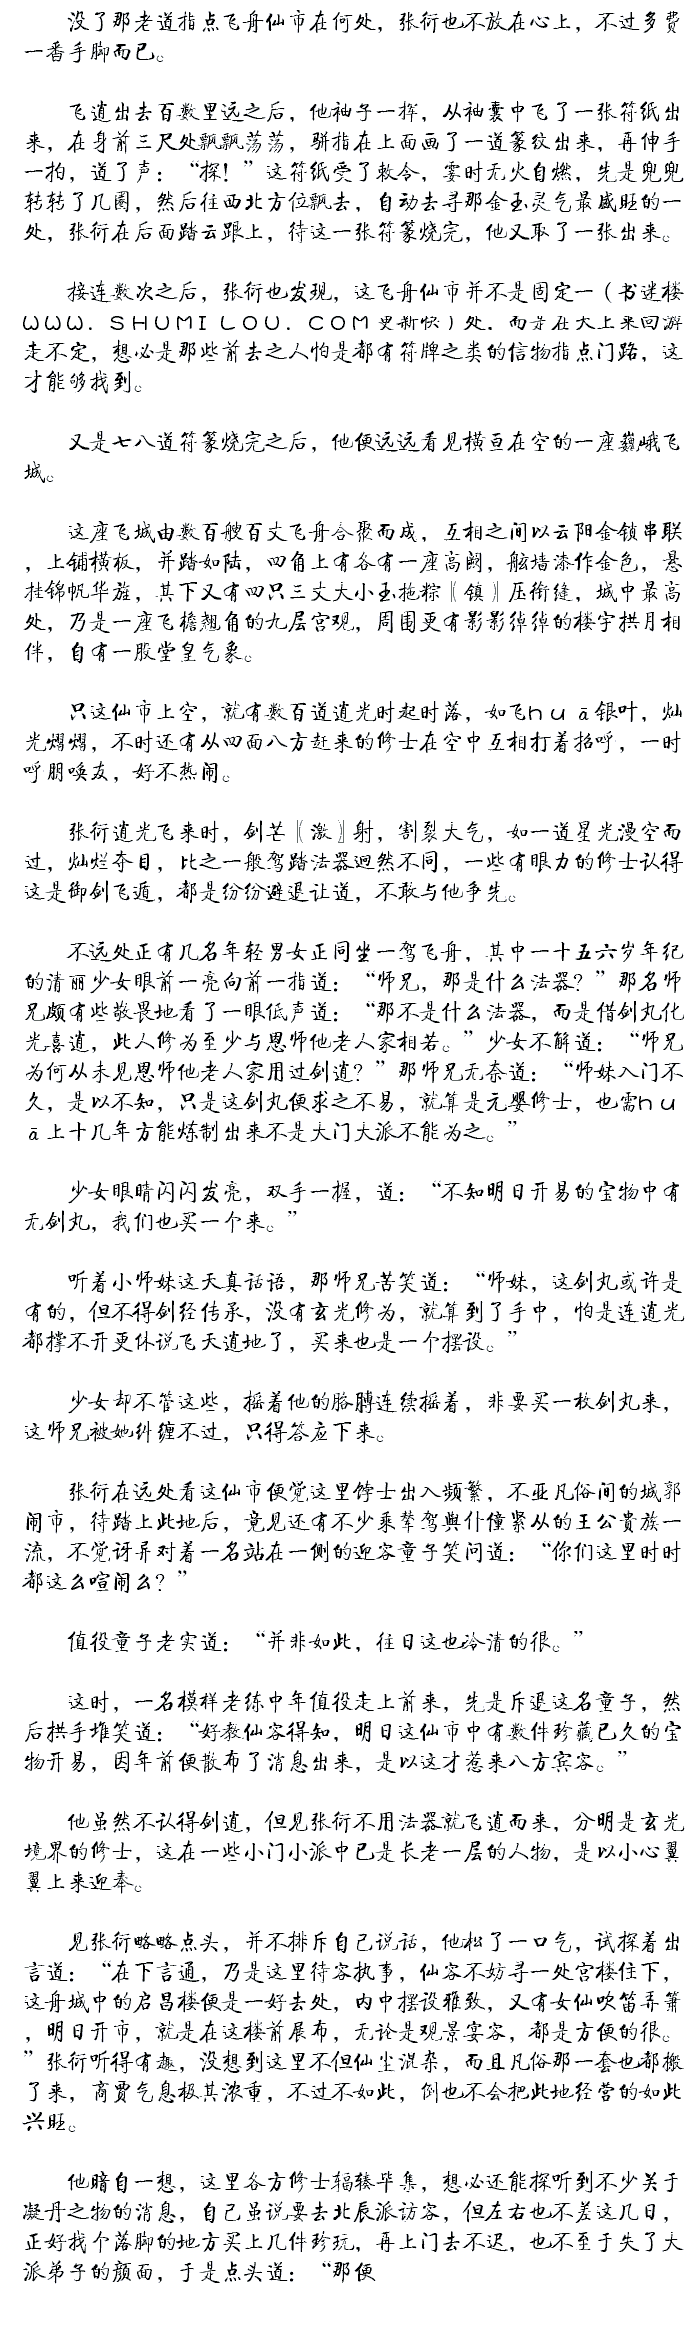 没了那老道指点飞舟仙市在何处，张衍也不放在心上，不过多费
一番手脚而已。
飞遁出去百数里远之后，他袖子一挥，从袖囊中飞了一张符纸出
来，在身前三尺处飘飘荡荡，骈指在上面画了一道篆纹出来，再伸手
一拍，道了声：“探！”这符纸受了敕令，霎时无火自燃，先是兜兜
转转了几圈，然后往西北方位飘去，自动去寻那金玉灵气最盛旺的一
处，张衍在后面踏云跟上，待这一张符篆烧完，他又取了一张出来。
接连数次之后，张衍也发现，这飞舟仙市并不是固定一（书迷楼
ＷＷＷ．ＳＨＵＭＩＬＯＵ．ＣＯＭ更新快）处，而是在天上来回游
走不定，想必是那些前去之人怕是都有符牌之类的信物指点门路，这
才能够找到。
又是七八道符篆烧完之后，他便远远看见横亘在空的一座巍峨飞
城。
这座飞城由数百艘百丈飞舟合聚而成，互相之间以云阳金锁串联
，上铺横板，并踏如陆，四角上有各有一座高阙，舷墙漆作金色，悬
挂锦帆华旌，其下又有四只三丈大小玉拖粽〖镇〗压衔缝，城中最高
处，乃是一座飞檐翘角的九层宫观，周围更有影影绰绰的楼宇拱月相
伴，自有一股堂皇气象。
只这仙市上空，就有数百道遁光时起时落，如飞ｈｕā银叶，灿
光熠熠，不时还有从四面八方赶来的修士在空中互相打着招呼，一时
呼朋唤友，好不热闹。
张衍遁光飞来时，剑芒〖激〗射，割裂大气，如一道星光漫空而
过，灿烂夺目，比之一般驾踏法器迥然不同，一些有眼力的修士认得
这是御剑飞遁，都是纷纷避退让道，不敢与他争先。
不远处正有几名年轻男女正同坐一驾飞舟，其中一十五六岁年纪
的清丽少女眼前一亮向前一指道：“师兄，那是什么法器？”那名师
兄颇有些敬畏地看了一眼低声道：“那不是什么法器，而是借剑丸化
光喜遁，此人修为至少与恩师他老人家相若。”少女不解道：“师兄
为何从未见恩师他老人家用过剑遁？”那师兄无奈道：“师妹入门不
久，是以不知，只是这剑丸便求之不易，就算是元婴修士，也需ｈｕ
ā上十几年方能炼制出来不是大门大派不能为之。”
少女眼睛闪闪发亮，双手一握，道：“不知明日开易的宝物中有
无剑丸，我们也买一个来。”
听着小师妹这天真话语，那师兄苦笑道：“师妹，这剑丸或许是
有的，但不得剑经传承，没有玄光修为，就算到了手中，怕是连遁光
都撑不开更休说飞天遁地了，买来也是一个摆设。”
少女却不管这些，摇着他的胳膊连续摇着，非要买一枚剑丸来，
这师兄被她纠缠不过，只得答应下来。
张衍在远处看这仙市便觉这里饽士出入频繁，不亚凡俗间的城郭
闹市，待踏上此地后，竟见还有不少乘辇驾舆仆僮紧从的王公贵族一
流，不觉讶异对着一名站在一侧的迎客童子笑问道：“你们这里时时
都这么喧闹么？”
值役童子老实道：“并非如此，往日这也冷清的很。”
这时，一名模样老练中年值役走上前来，先是斥退这名童子，然
后拱手堆笑道：“好教仙客得知，明日这仙市中有数件珍藏已久的宝
物开易，因年前便散布了消息出来，是以这才惹来八方宾客。”
他虽然不认得剑遁，但见张衍不用法器就飞遁而来，分明是玄光
境界的修士，这在一些小门小派中已是长老一层的人物，是以小心翼
翼上来迎奉。
见张衍略略点头，并不排斥自己说话，他松了一口气，试探着出
言道：“在下言通，乃是这里待客执事，仙客不妨寻一处宫楼住下，
这舟城中的启昌楼便是一好去处，内中摆设雅致，又有女仙吹笛弄箫
，明日开市，就是在这楼前展布，无论是观景宴客，都是方便的很。
”张衍听得有趣，没想到这里不但仙尘混杂，而且凡俗那一套也都搬
了来，商贾气息极其浓重，不过不如此，倒也不会把此地经营的如此
兴旺。
他暗自一想，这里各方修士辐辏毕集，想必还能探听到不少关于
凝丹之物的消息，自己虽说要去北辰派访客，但左右也不差这几日，
正好找个落脚的地方买上几件珍玩，再上门去不迟，也不至于失了大
派弟子的颜面，于是点头道：“那便